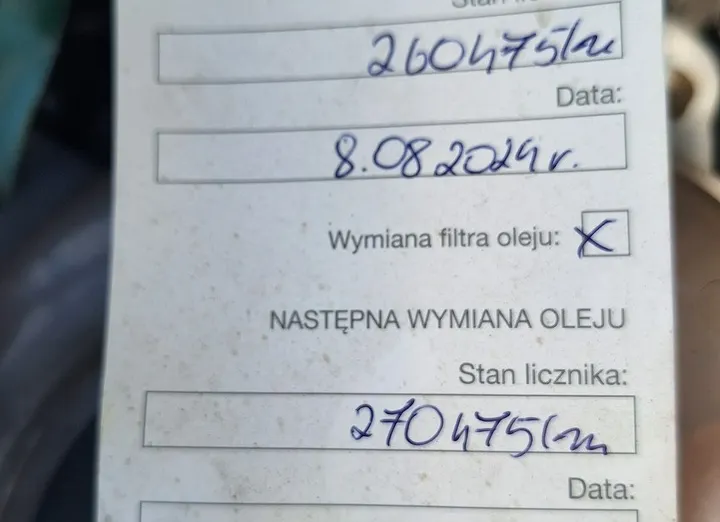 260475km
Data:
8.08 2024r.
Wymiana filtra oleju: X
NASTĘPNA WYMIANA OLEJU
Stan licznika:
270475km
Data: